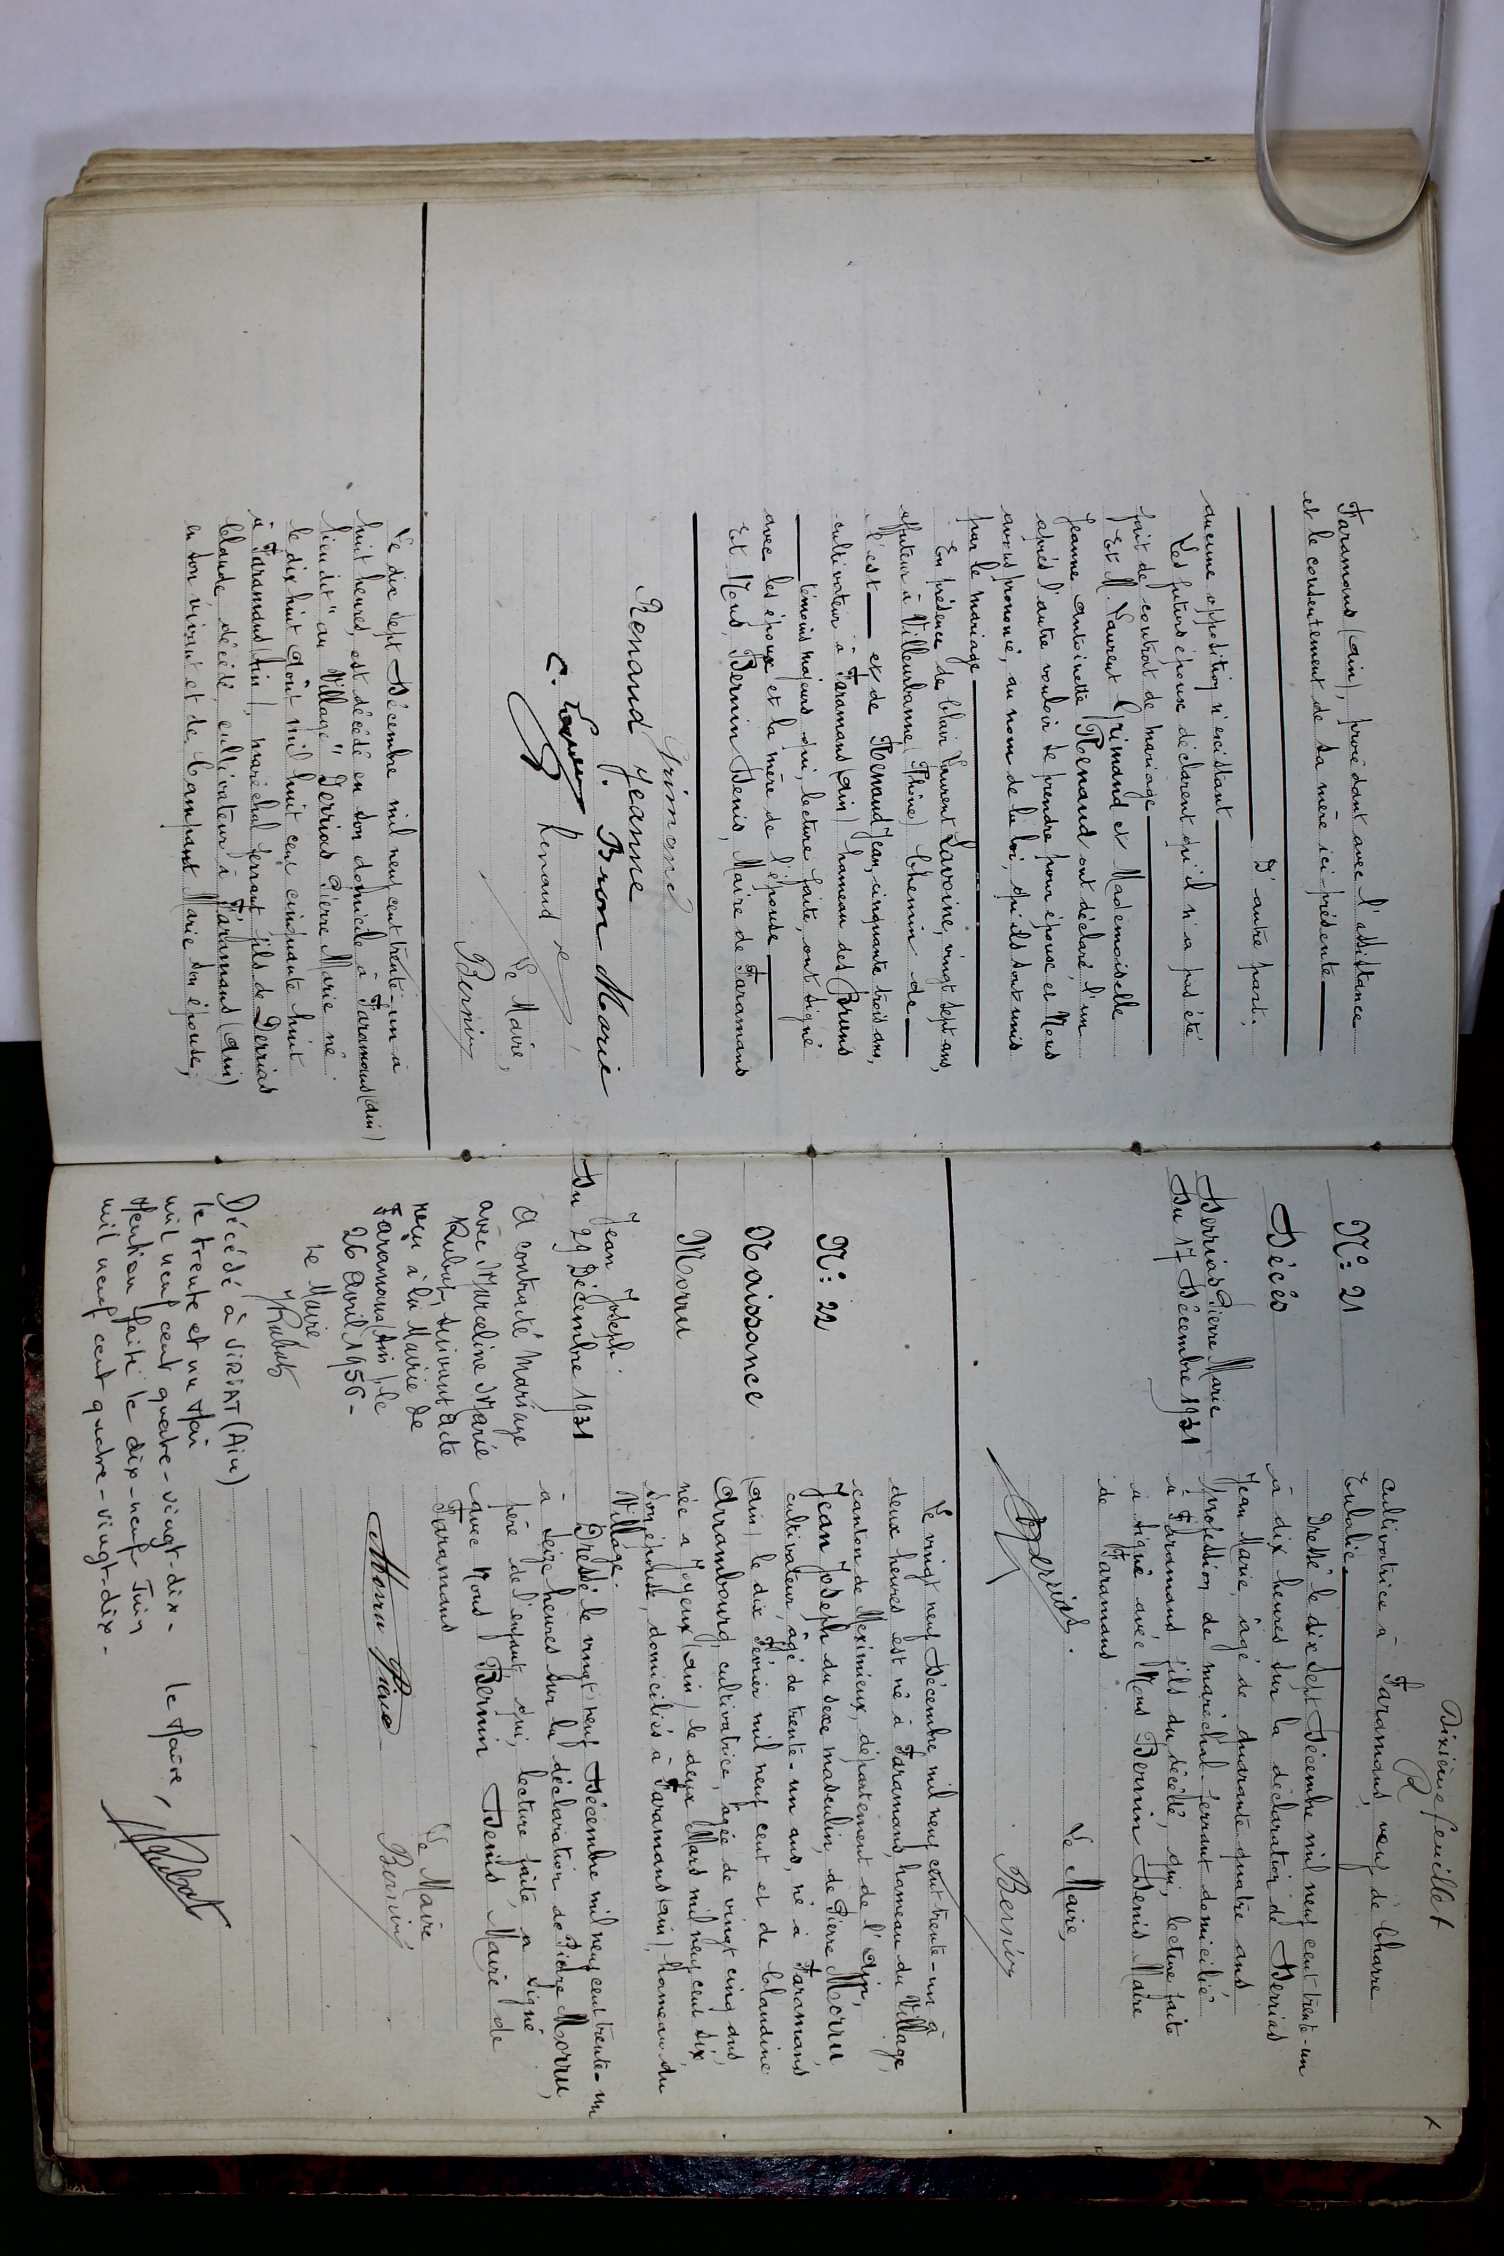 Faramans (Ain), procédant avec l'assistance
et le consentement de sa mère ici présente
D'autre part.
aucune opposition n'existant
Les futurs époux déclarent qu'il n'a pas été
fait de contrat de mariage
Et M. Laurent Grimand et Mademoiselle
Jeanne Antoinette Renaud ont déclaré, l'un
après l'autre vouloir se prendre pour époux et Nous
avons prononcé, au nom de la loi, qu'ils sont unis
par le mariage
En présence de Clair Laurent Lavoine, vingt sept ans,
affuteur à Villeurbanne (Rhône) Chemin de
l'est et de Renaud Jean, cinquante trois ans,
cultivateur à Faramans (Ain) hameau des Bruns
témoins majeurs qui, lecture faite, ont signé
avec les époux et la mère de l'épouse
Et Nous, Bernin Denis, Maire de Faramans
Grimand
Renaud Jeanne
J. Bron Marie
C. Renaud
Le Maire,
Bernin
Le dix sept Décembre mil neuf cent trente-un à
huit heures, est décédé en son domicile à Faramans (Ain)
lieu dit "au Village" Derrias Pierre Marie né
le dix huit Août mil huit cent cinquante huit
à Faramans (Ain), maréchal ferrant fils de Derrias
Claude, décédé, cultivateur à Faramans (Ain)
en son vivant et de Campant Marie son épouse,
Dixième feuillet
N° 21
Décès
Derrias Pierre Marie
Du 17 Décembre 1931
cultivatrice à Faramans, veuf de Charve
Eulalie
Dressé le dix sept Décembre mil neuf cent trente-un
à dix heures sur la déclaration de Derrias
Jean Marie, âgé de quarante quatre ans
profession de maréchal-ferrant domicilié
à Faramans fils du décédé, qui, lecture faite
a signé avec Nous Bernin Denis Maire
de Faramans
Derrias.
Le Maire,
Bernin
N° 22
Naissance
Morru
Jean Joseph.
Du 29 Décembre 1931
Le vingt neuf Décembre mil neuf cent trente-un à
deux heures est né à Faramans, hameau du Village,
canton de Meximieux, département de l'Ain,
Jean Joseph du sexe masculin, de Pierre Morru
cultivateur, âgé de trente-un ans, né à Faramans
(Ain) le dix Février mil neuf cent et de Claudine
Arrambourg cultivatrice, âgée de vingt cinq ans,
née à Joyeux (Ain) le deux Mars mil neuf cent six,
son épouse, domiciliés à Faramans (Ain), hameau du
Village.
Dressé le vingt neuf Décembre mil neuf cent trente-un
à seize heures sur la déclaration de Pierre Morru,
père de l'enfant, qui, lecture faite, a signé
avec Nous Bernin Denis, Maire de
Faramans
Morru Pierre
Le Maire
Bernin
A contracté Mariage
avec Marceline Marie
Rubat, suivant acte
reçu à la Mairie de
Faramans (Ain), le
26 Avril 1956-
Le Maire
Rubat
Décédé à VIRIAT (Ain)
le trente et un Mai
mil neuf cent quatre-vingt-dix-
Mention faite le dix-neuf Juin
mil neuf cent quatre-vingt-dix-
le Maire,
Rubat